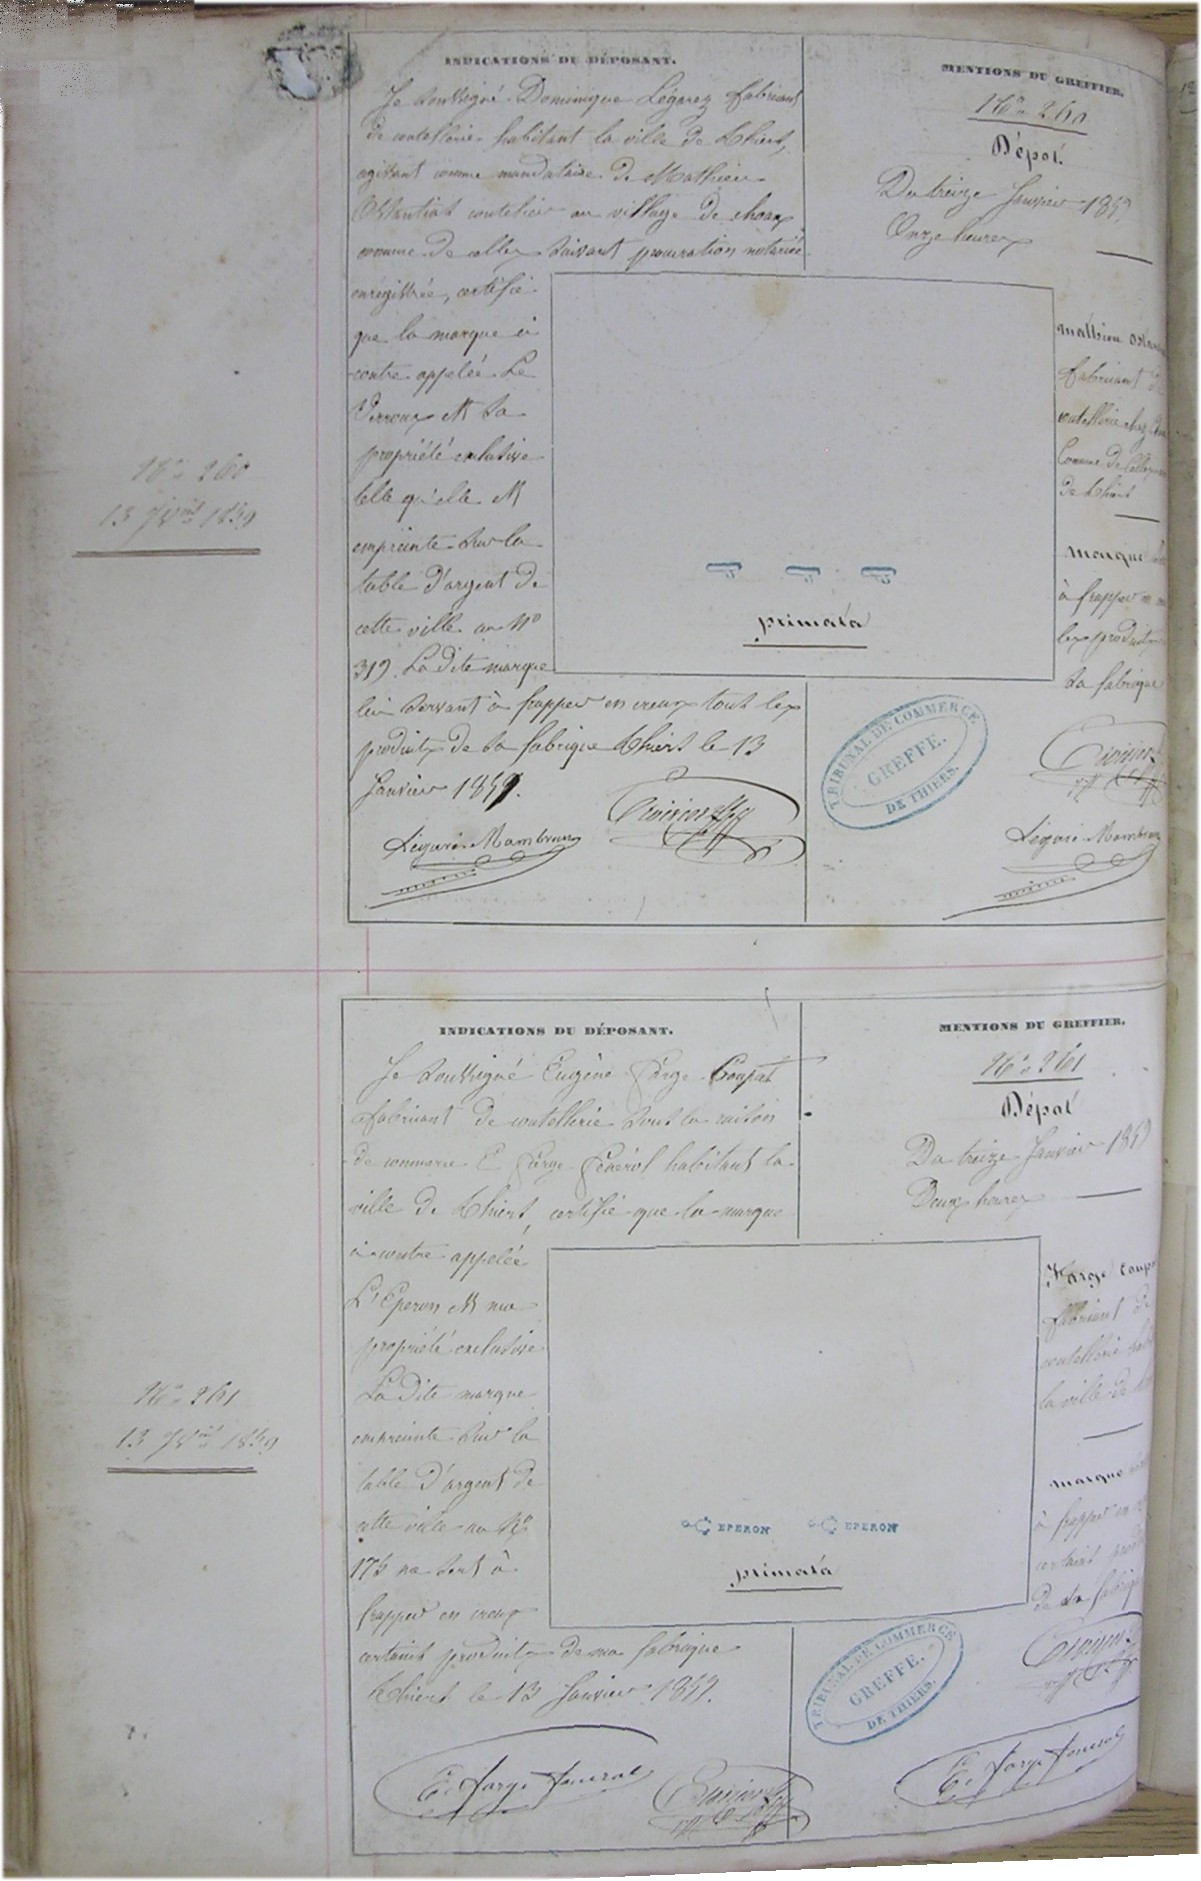 INDICATIONS DU DÉPOSANT.
Je soussigné Dominique Légarez fabricant
de coutellerie habitant la ville de Thiers,
agissant comme mandataire de Mathieu
coutelier au village de
comune de suivant procuration notariée
enregistrée, certifie
que la marque ci
contre appelée Le
Verroux est sa
propriété exclusive
telle qu'elle est
empreinte sur la
table d'argent de
cette ville au No
319. La dite marque
lui servant à frapper en creux tout les
produits de sa fabrique Thiers le 13
Janvier 1859.
Légaré Mambrun
MENTIONS DU GREFFIER.
No 260
Dépot
Du treize Janvier 1859
Onze heures
mathieu
fabricant
coutellerie chez
Comune de
de Thiers
marque
à frapper
les produits
sa fabrique
Légaré Mambrun
primata
TRIBUNAL DE COMMERCE
GREFFE.
DE THIERS.
No 260
13 Jvier 1859
INDICATIONS DU DÉPOSANT.
Je soussigné Eugène Farge Coupat
fabricant de coutellerie sous la raison
de commerce E Farge habitant la
ville de Thiers, certifie que la marque
ci contre appelée
L'Eperon est ma
propriété exclusive
La dite marque
empreinte sur la
table d'argent de
cette ville au No
175 me sert à
frapper en creux
certains produits de ma fabrique
Thiers le 13 Janvier 1859.
E. farge
MENTIONS DU GREFFIER.
No 261
Dépot
Du treize Janvier 1859
Deux heures
Farge
fabricant de
coutellerie
la ville de
marque
à frapper en
certains
de sa fabrique
E. farge
EPERON EPERON
primata
TRIBUNAL DE COMMERCE
GREFFE.
DE THIERS.
No 261
13 Jvier 1859